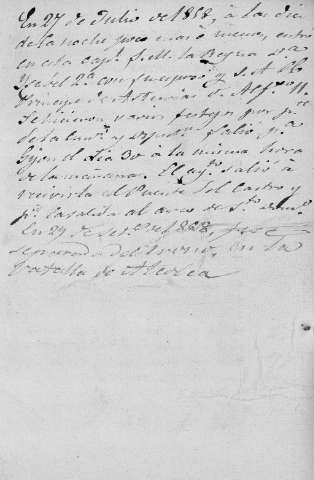 En 27 de Julio de 1858, à las diez
de la noche poco mas ó menos, entró
en esta capl. S. M. la Reyna Dª
Ysabel 2ª con su esposo y S. A. el
Príncipe de Asturias Dn Alfonso
se hicieron varios festejos por pte
de la Ciud. y Diputn. salió pª
Gijon el dia 30 à la misma hora
de la mañana. El ayto. salió à
recivirla al Puente Sol Castro y
pr. la salida al arco de Sto. Domo.
En 29 de Set.e de 1868, fue
separada del trono, en la
batalla de Alcolea